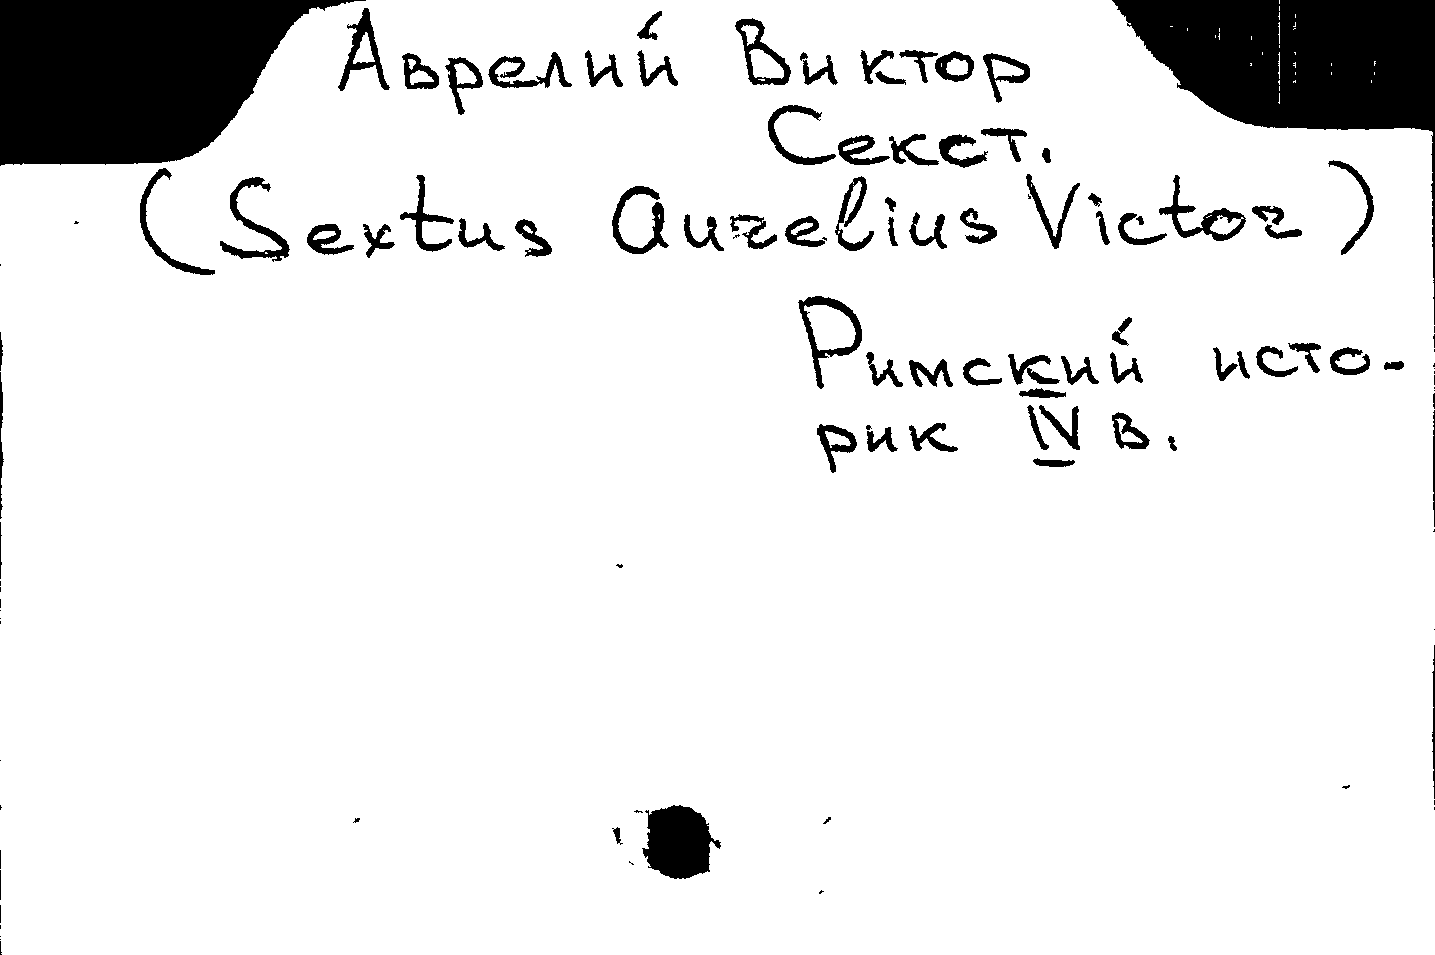 Аврелий Виктор
Секст.
(Sextus Aurelius Victor)
Римский исто-
рик IV в.